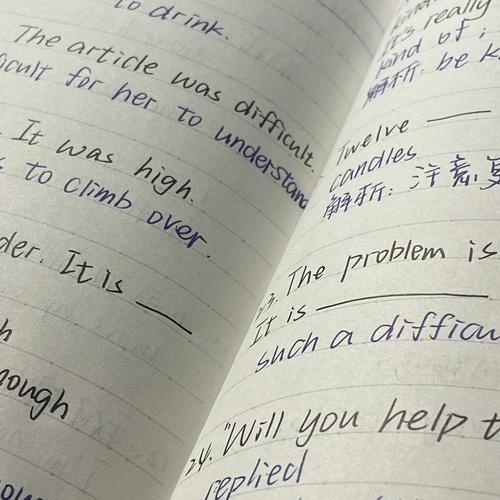 to drink.
The article was difficult.
for her to understand
It was high.
to climb over.
It is ___
It's really
kind of;
解析: be
Twelve ___
candles
解析: 注意
23. The problem is
It is ___
such a
24. "Will you help
replied